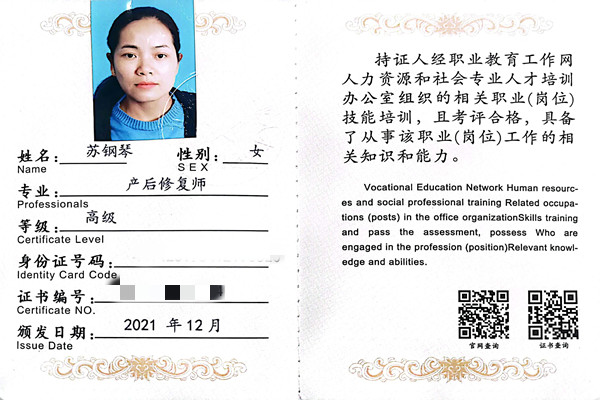 姓名: 苏钢琴 性别: 女
Name SEX
专业: 产后修复师
Professionals
等级: 高级
Certificate Level
身份证号码:
Identity Card Code
证书编号:
Certificate NO.
颁发日期: 2021 年 12 月
Issue Date
持证人经职业教育工作网
人力资源和社会专业人才培训
办公室组织的相关职业(岗位)
技能培训，且考评合格，具备
了从事该职业(岗位)工作的相
关知识和能力。
Vocational Education Network Human resourc-
es and social professional training Related occupa-
tions (posts) in the office organizationSkills training
and pass the assessment, possess Who are
engaged in the profession (position)Relevant knowl-
edge and abilities.
官网查询 证书查询